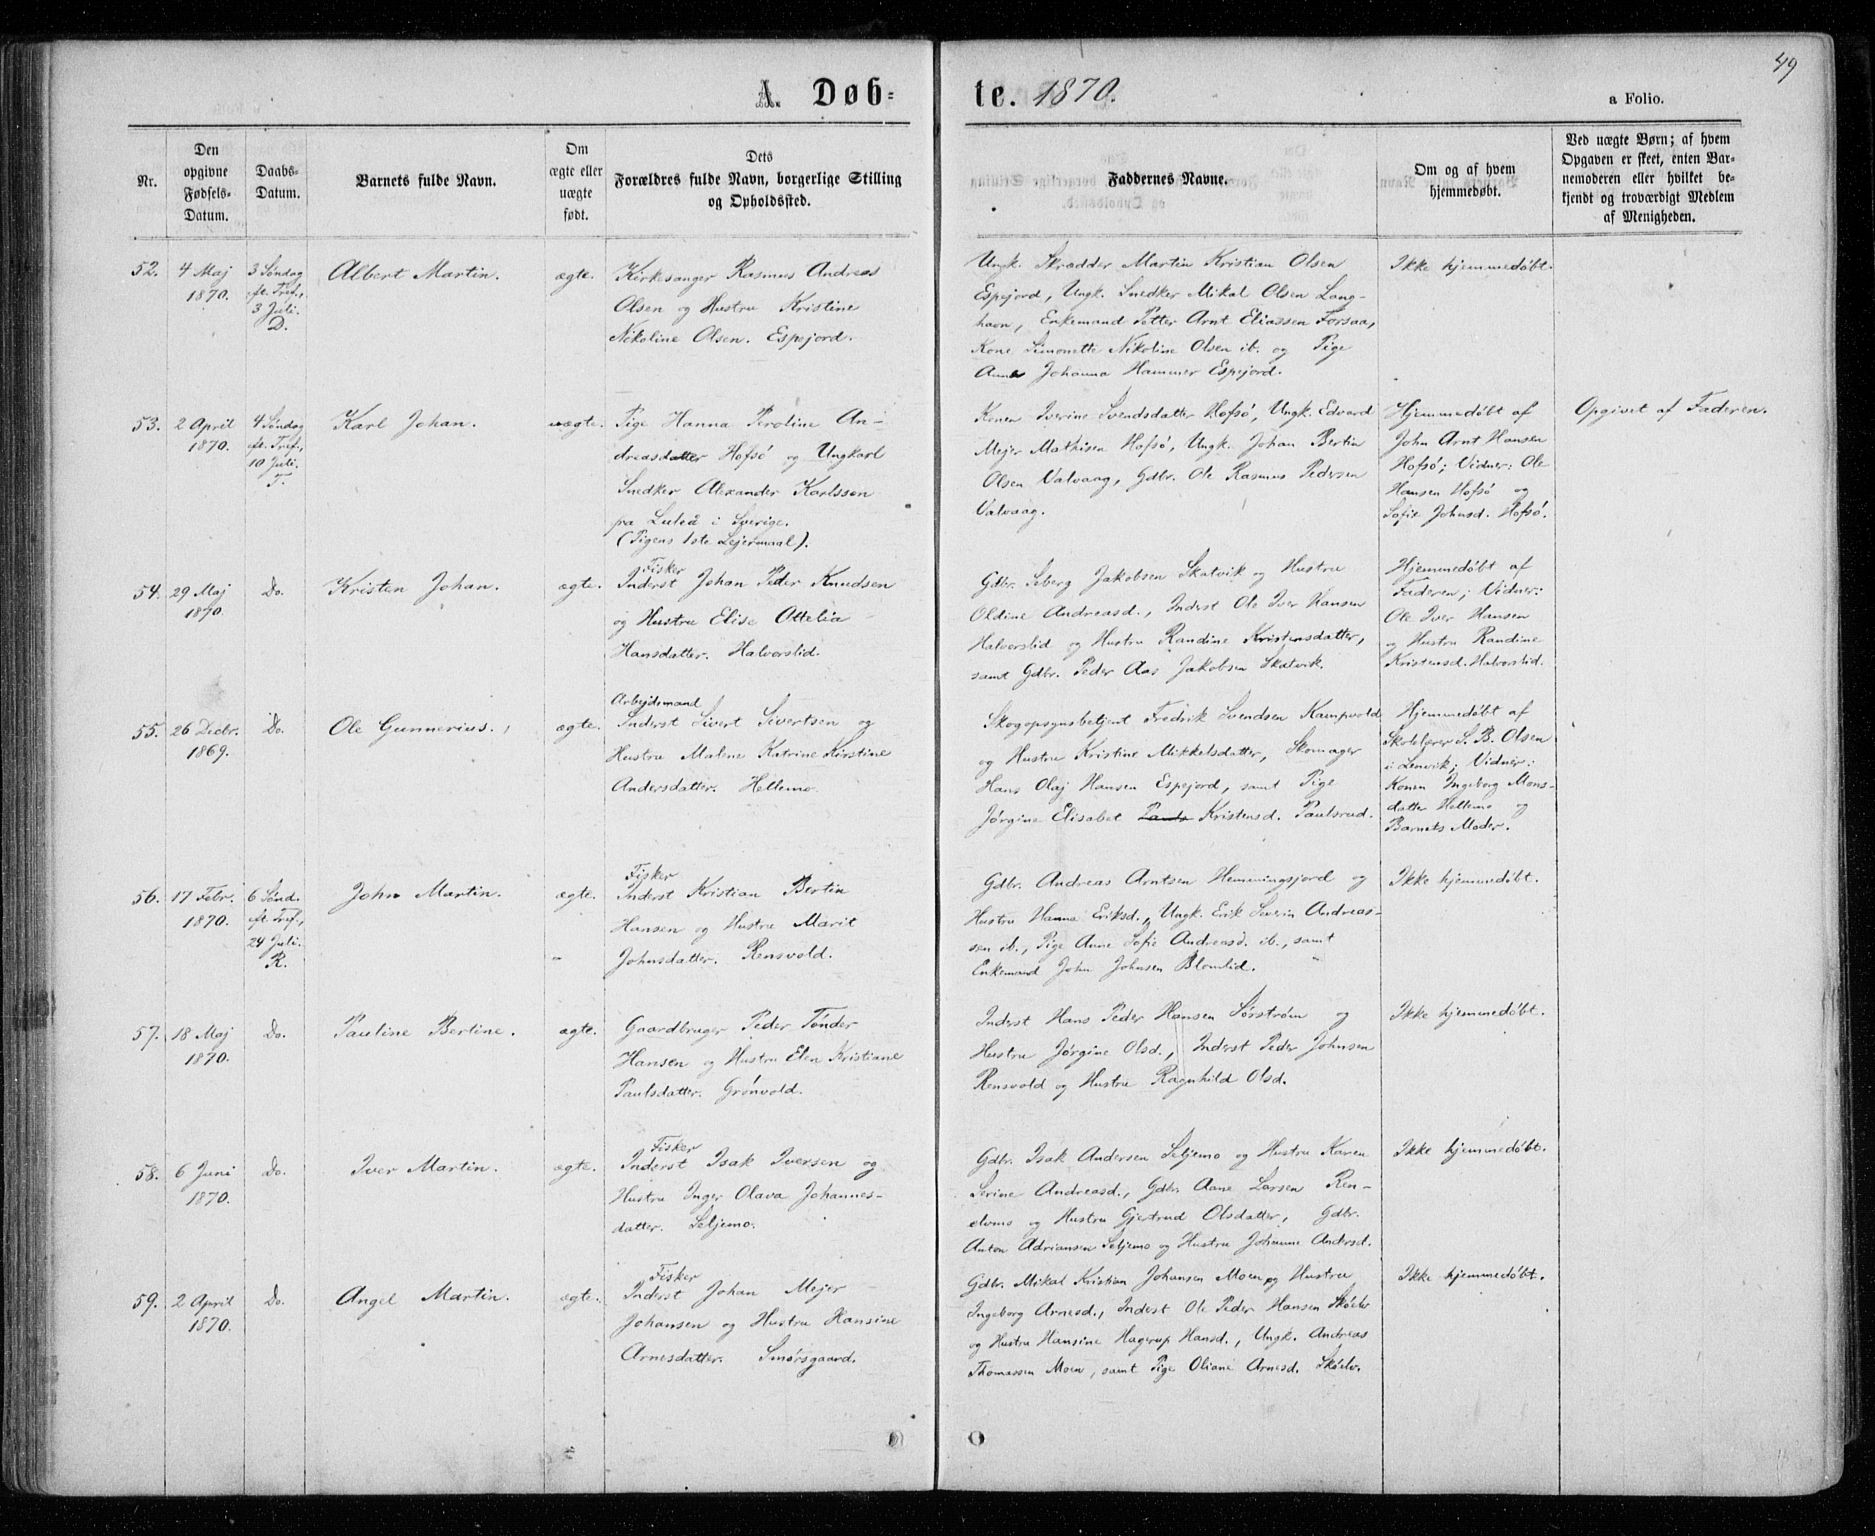 49
A. Døb=
te. 1870.
a Folio.
Nr.
Den
opgivne
Fødsels-
Datum.
Daabs-
Datum.
Barnets fulde Navn.
Om
ægte eller
uægte
født.
Dets
Forældres fulde Navn, borgerlige Stilling
og Opholdssted.
Faddernes Navne.
Om og af hvem
hjemmedøbt.
Ved uægte Børn; af hvem
Opgaven er skeet, enten Bar-
nemoderen eller hvilket be-
kjendt og troværdigt Medlem
af Menigheden.
52.
4 Maj
1870.
3 Søndag
eft. Tref.,
3 Juli.
D.
Albert Martin.
ægte.
Kirkesanger Rasmus Andreas
Olsen og Hustru Kristine
Nikoline Olsen. Espejord.
Ungk. Skrædder Martin Kristian Olsen
Espejord, Ungk. Snedker Mikal Olsen Lang-
havn, Enkemand Petter Arnt Eliassen Forsaa,
Kone Simonette Nikoline Olsen ib. og Pige
Anna Johanna Hammer Espejord.
Ikke hjemmedøbt.
53.
2 April
1870.
4 Søndag
eft. Tref.,
10 Juli.
T.
Karl Johan.
uægte.
Pige Hanna Peroline An-
dreasdatter Hofsö og Ungkarl
Snedker Alexander Karlsson
fra Luleå i Sverige.
(Pigens 1ste Lejermaal).
Konen Iverine Svendsdatter Hofsö, Ungk. Edvard
Mejer Mathisen Hofsö, Ungk. Johan Bertin
Olsen Valvaag, Gdbr. Ole Rasmus Pedersen
Valvaag.
Hjemmedöbt af
John Arnt Hansen
Hofsö; Vidner: Ole
Hansen Hofsö og
Sofie Johnsd. Hofsö.
Opgivet af Faderen.
54.
29 Maj
1870.
Do.
Kristen Johan.
ægte.
Fisker
Inderst Johan Peder Knudsen
og Hustru Elise Ottelia
Hansdatter. Halvorslid.
Gdbr. Seberg Jakobsen Skatvik og Hustru
Oldine Andreasd., Inderst Ole Iver Hansen
Halvorslid og Hustru Randine Kristensdatter,
samt Gdbr. Peder Aas Jakobsen Skatvik.
Hjemmedöbt af
Faderen; Vidner:
Ole Iver Hansen
og Hustru Randine
Kristensd. Halvorslid.
55.
26 Decbr.
1869.
Do.
Ole Gunnerius.
ægte.
Arbejdsmand
Inderst Sivert Sivertsen og
Hustru Malene Katrine Kirstine
Andersdatter. Hellemo.
Skogopsynsbetjent Fredrik Svendsen Kampvold
og Hustru Kristine Mikkelsdatter, Skomager
Hans Olaj Hansen Espejord, samt Pige
Jörgine Elisabet Pauls Kristensd. Paulsrud.
Hjemmedöbt af
Skolelærer S. B. Olsen
i Lenvik; Vidner:
Konen Ingeborg Mons-
datter Hellemo og
Barnets Moder.
56.
17 Febr.
1870.
6 Sönd.
eft. Tref.,
24 Juli.
R.
John Martin.
ægte.
Fisker
Inderst Kristian Bertin
Hansen og Hustru Marit
Johnsdatter. Rensvold.
Gdbr. Andreas Arntsen Hemmingsjord og
Hustru Hanna Eriksd., Ungk. Erik Severin Andreas-
sen ib., Pige Anne Sofie Andreasd. ib., samt
Enkemand John Johnsen Blomlid.
Ikke hjemmedöbt.
57.
18 Maj
1870.
Do.
Pauline Bertine.
ægte.
Gaardbruger Peder Tönder
Hansen og Hustru Elen Kristiane
Paulsdatter. Grönvold.
Inderst Hans Peder Hansen Sörström og
Hustru Jörgine Olsd., Inderst Peder Johnsen
Rensvold og Hustru Ragnhild Olsd.
Ikke hjemmedöbt.
58.
6 Juni
1870.
Do.
Iver Martin.
ægte.
Fisker
Inderst Isak Iversen og
Hustru Inger Olava Johannes-
datter. Seljemo.
Gdbr. Isak Andersen Seljemo og Hustru Karen
Serine Andreasd., Gdbr. Aane Larsen Ren-
elvmo og Hustru Gjertrud Olsdatter, Gdbr.
Anton Adriansen Seljemo og Hustru Johanne Andersd.
Ikke hjemmedöbt.
59.
2 April
1870.
Do.
Angel Martin.
ægte.
Fisker
Inderst Johan Mejer
Johansen og Hustru Hansine
Arnesdatter. Smörsgaard.
Gdbr. Mikal Kristian Johansen Moen og Hustru
Ingeborg Arnesd., Inderst Ole Peder Hansen Sköelv
og Hustru Hansine Hagerup Hansd., Ungk. Andreas
Thomassen Moen, samt Pige Oliane Arnesd. Sköelv.
Ikke hjemmedöbt.